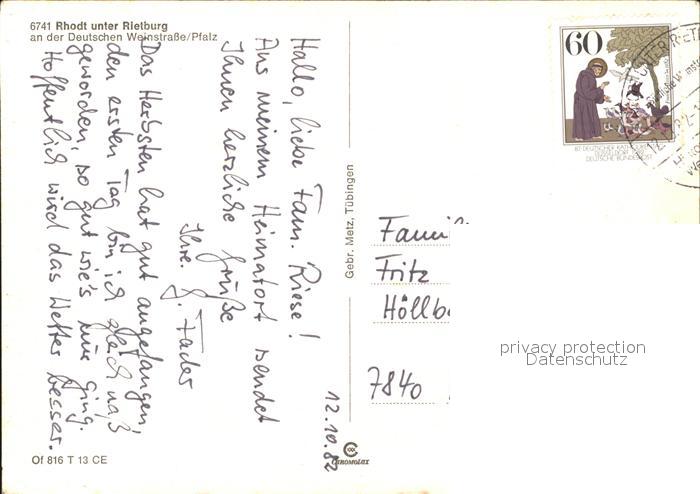 6741 Rhodt unter Rietburg
an der Deutschen Weinstraße/Pfalz
12.10.82
Hallo, liebe Fam. Riese!
Aus meinem Heimatort sendet
Ihnen herzliche Grüße
Ihre
Das Herbsten hat gut angefangen,
den ersten Tag bin ich gleich naß
geworden, so gut wie's nur ging.
Hoffentlich wird das Wetter besser.
Gebr. Metz, Tübingen
60
87. DEUTSCHER
DÜSSELDORF
DEUTSCHE BUNDESPOST
Fritz
7840
privacy protection
Datenschutz
CHROMOLUX
Of 816 T 13 CE